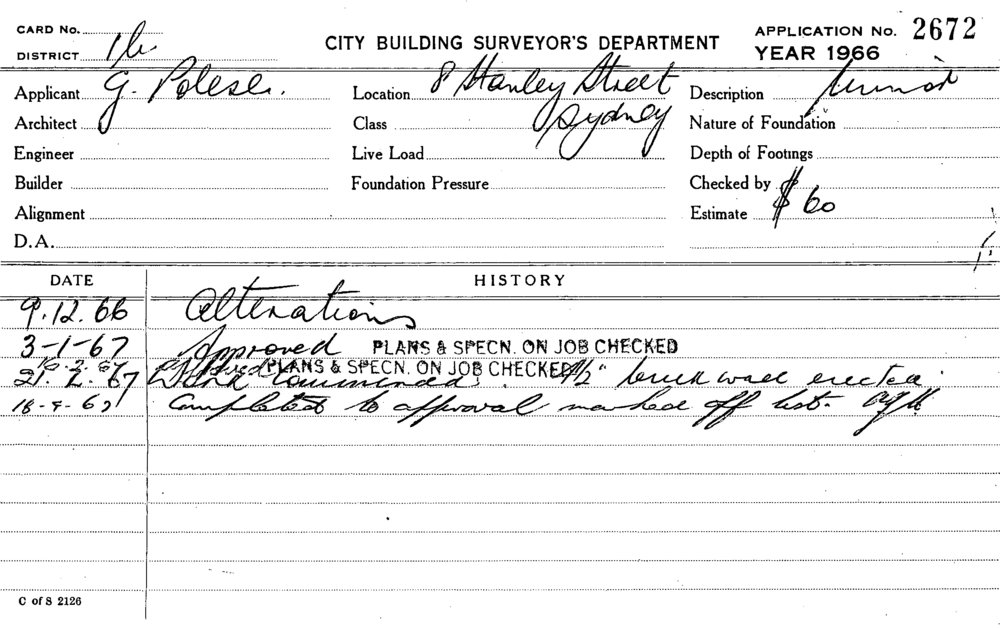 CARD No.
CITY BUILDING SURVEYOR'S DEPARTMENT
APPLICATION No. 2672
DISTRICT
YEAR 1966
Applicant G. Polese
Location 8 Stanley Street
Description
Architect
Class Sydney
Nature of Foundation
Engineer
Live Load
Depth of Footings
Builder
Foundation Pressure
Checked by
Alignment
Estimate $ 60
D.A.
DATE HISTORY
9.12.66 Alterations
3-1-67 Approved PLANS & SPECN. ON JOB CHECKED
PLANS & SPECN. ON JOB CHECKED
21.2.67 Work commenced. 4½" brick wall erected.
Completed to approval marked off list.
C of S 2126